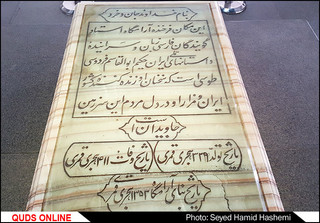 بنام خداوند جان و خرد
این مکان فرخنده آرامگاه استاد
گویندگان فارسی زبان و سراینده
داستانهای ملی ایران حکیم ابوالقاسم فردوسی
طوسی است که سخنان او زنده کننده کشور
ایران و مزار او در دل مردم این سرزمین
جاویدان است
تاریخ تولد ۳۲۹ هجری قمری
تاریخ وفات ۴۱۱ هجری قمری
تاریخ بنای آرامگاه ۱۳۵۳ هجری قمری
QUDS ONLINE
Photo: Seyed Hamid Hashemi